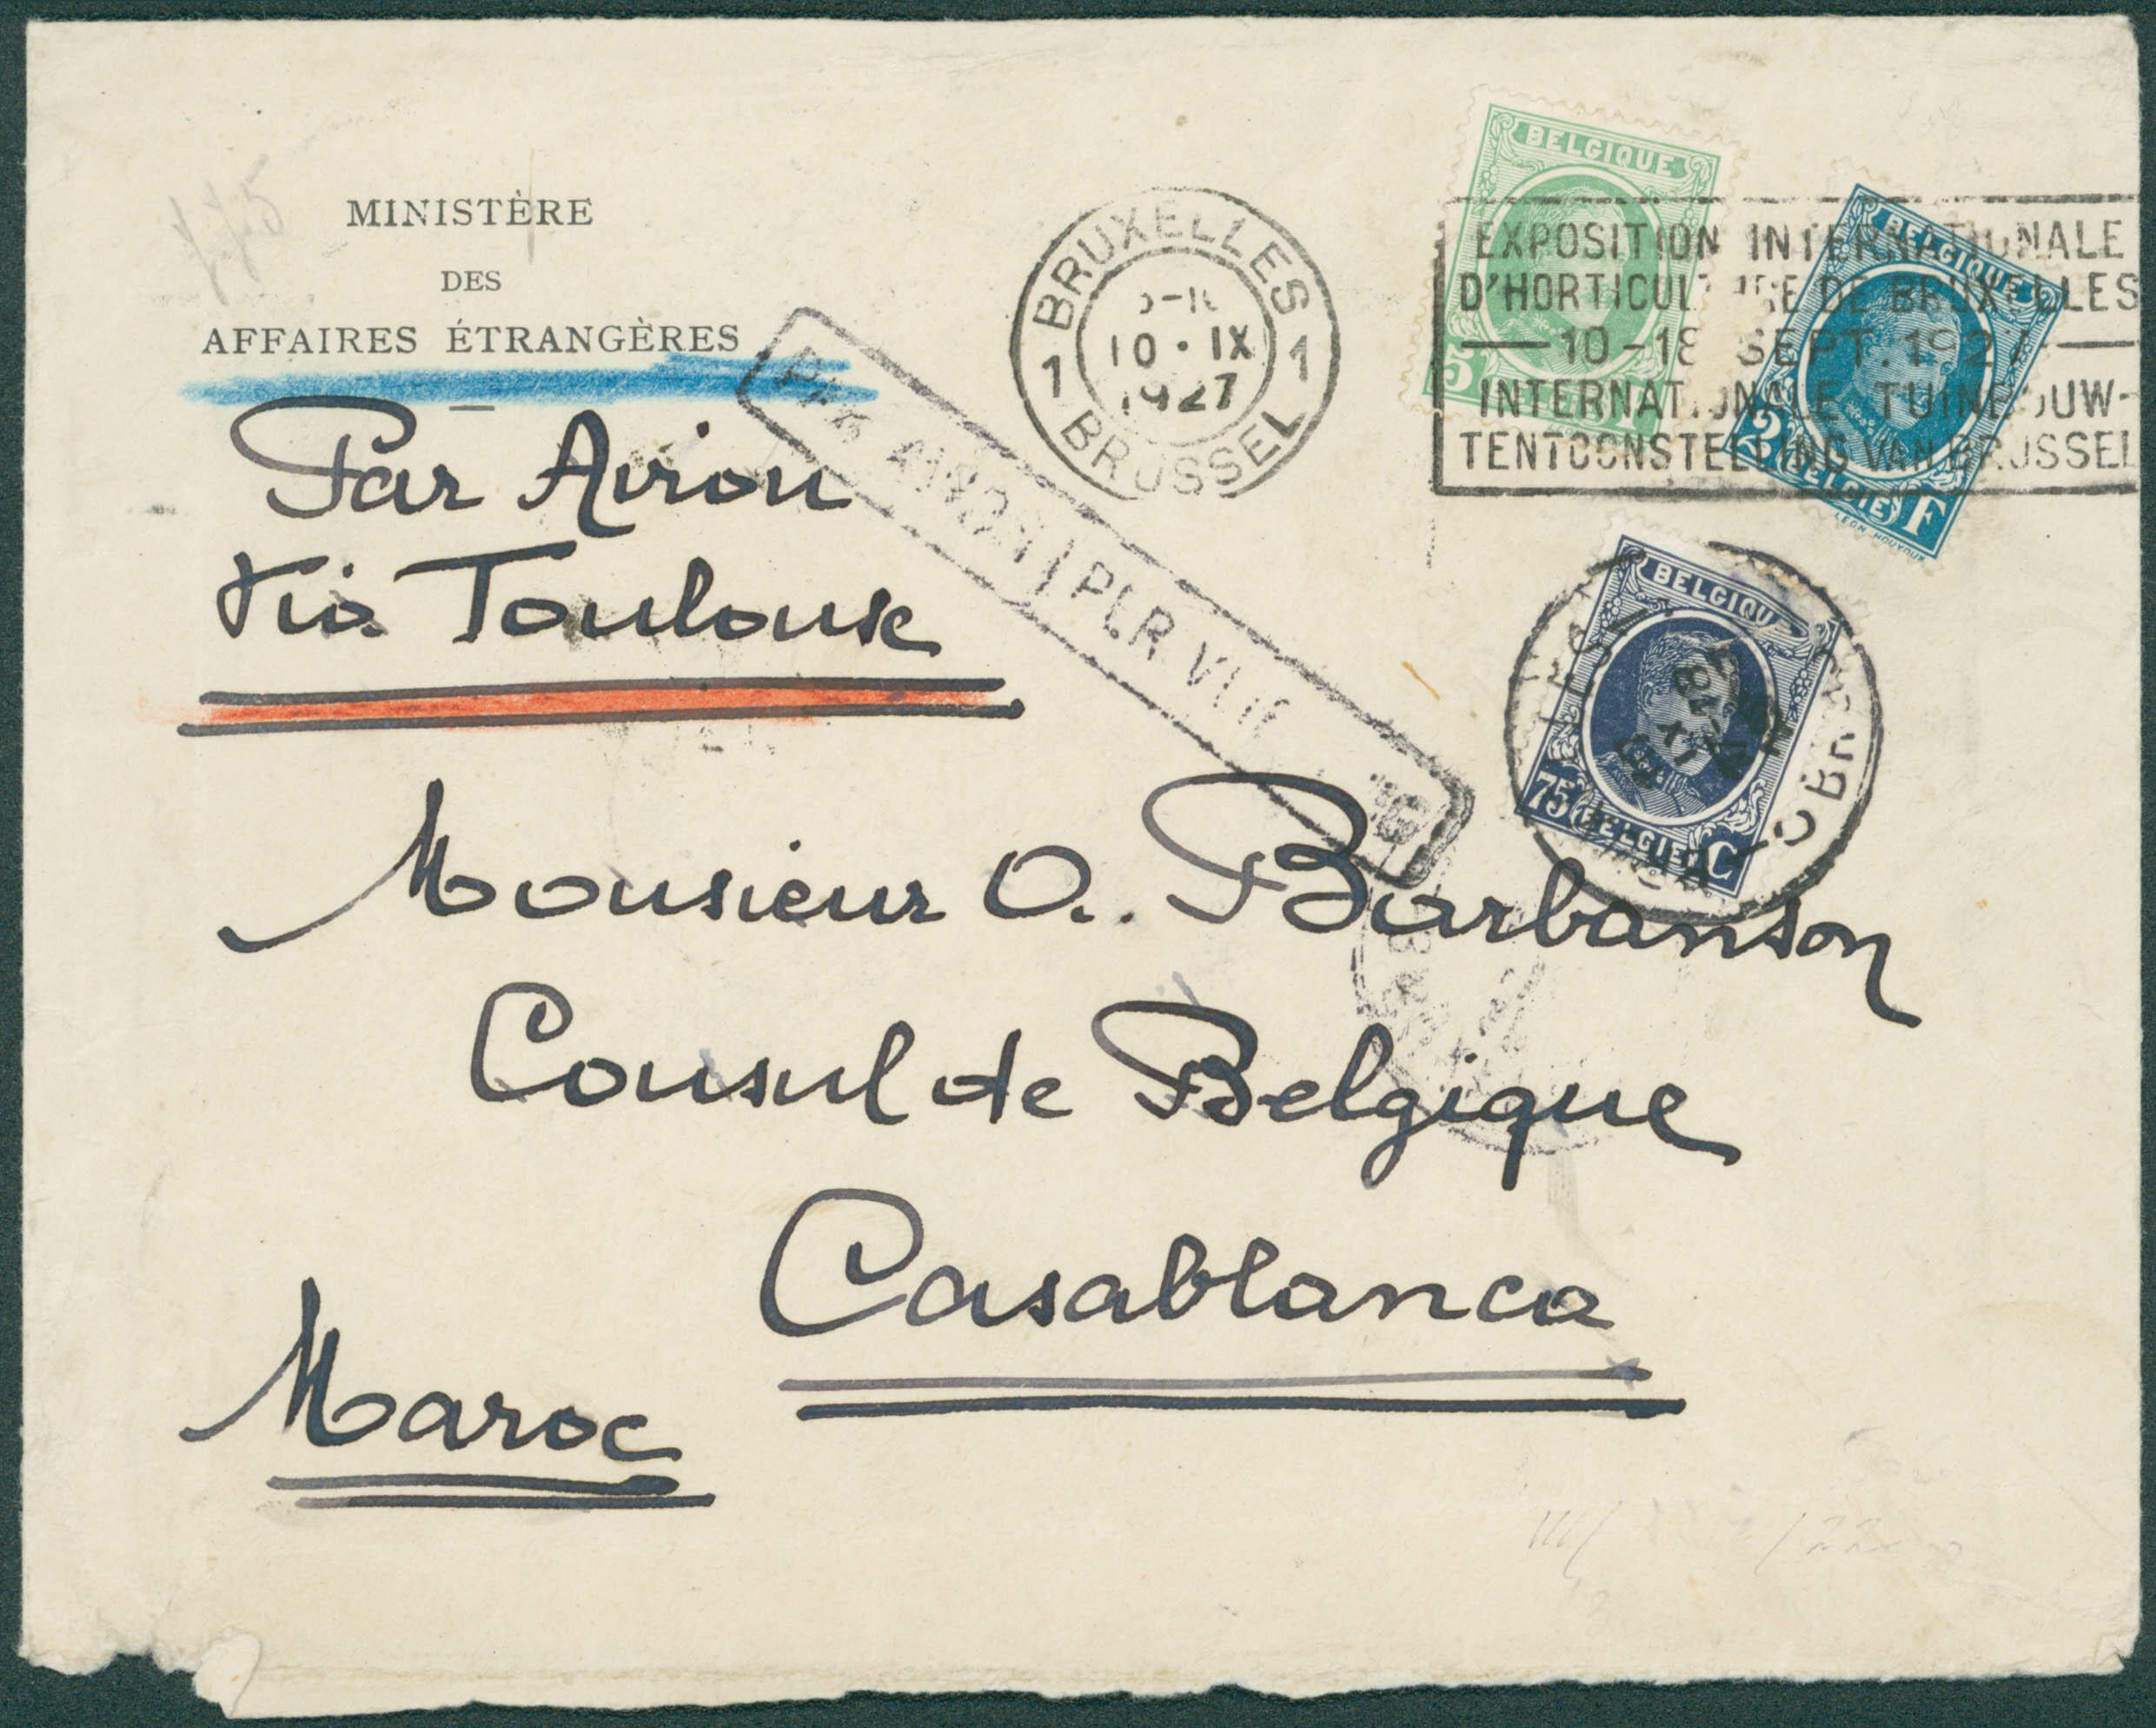 MINISTÈRE
DES
AFFAIRES ÉTRANGÈRES
Par Avion
Via Toulouse
Monsieur O. Barbanson
Consul de Belgique
Casablanca
Maroc
BRUXELLES
10·IX
1927
1 1
BRUSSEL
PAR AVION
EXPOSITION INTERNATIONALE
D'HORTICULTURE DE BRUXELLES
10-18 SEPT. 1927
INTERNATIONALE TUINBOUW-
TENTOONSTELLING VAN BRUSSEL
BELGIQUE
5
BELGIQUE
2 BELGIË F
LÉON HOUYOUX
BELGIQUE
75 BELGIË C